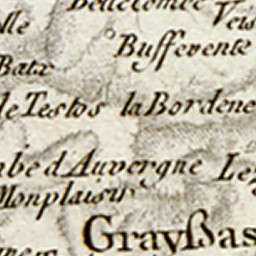 Bellecombe
Veis
lle
Buffevente
Batx
le Testos la Bordene
be d'Auvergne Le
Monplaisir
Grayßas